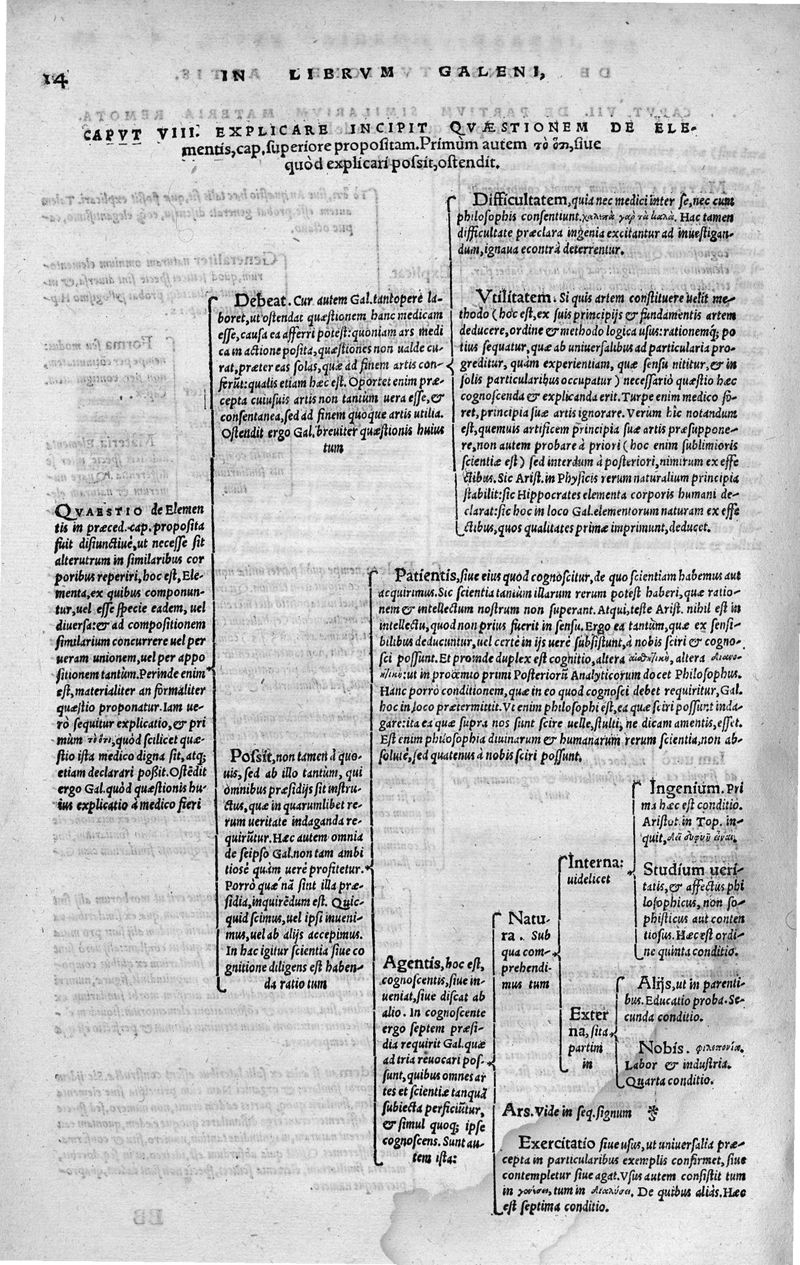 14 IN LIBRVM GALENI,
CAPVT VIII. EXPLICARE INCIPIT QVÆSTIONEM DE ELE-
mentis, cap. superiore propositam. Primùm autem τὸ ὅτι, siue
quòd explicari possit, ostendit.
QVAESTIO de Elemen
tis in præced. cap. proposita
fuit disiunctiuè, ut necesse sit
alterutrum in similaribus cor
poribus reperiri, hoc est, Ele-
menta, ex quibus componun-
tur, uel esse specie eadem, uel
diuersa: & ad compositionem
similarium concurrere uel per
ueram unionem, uel per appo
sitionem tantùm. Perinde enim
est, materialiter an formaliter
quæstio proponatur. Iam ue-
rò sequitur explicatio, & pri
mùm τὸ ὅτι, quòd scilicet quæ-
stio ista medico digna sit, atq;
etiam declarari possit. Ostēdit
ergo Gal. quòd quæstionis hu-
ius explicatio à medico fieri
Debeat. Cur autem Gal. tantopere la-
boret, ut ostendat quæstionem hanc medicam
esse, causa ea afferri potest: quoniam ars medi
ca in actione posita, quæstiones non ualde cu-
rat, præter eas solas, quæ ad finem artis con-
ferūt: qualis etiam hæc est. Oportet enim præ-
cepta cuiusuis artis non tantùm uera esse, &
consentanea, sed ad finem quoque artis utilia.
Ostendit ergo Gal. breuiter quæstionis huius
tum
Difficultatem, quia nec medici inter se, nec cum
philosophis consentiunt. χαλεπὰ γὰρ τὰ καλά. Hac tamen
difficultate præclara ingenia excitantur ad inuestigan-
dum, ignaua econtrà deterrentur.
Vtilitatem. Si quis artem constituere uelit me-
thodo (hoc est, ex suis principijs & fundamentis artem
deducere, ordine & methodo logica usus: rationemq; po
tius sequatur, quæ ab uniuersalibus ad particularia pro-
greditur, quàm experientiam, quæ sensu nititur, & in
solis particularibus occupatur) necessariò quæstio hæc
cognoscenda & explicanda erit. Turpe enim medico fo-
ret, principia suæ artis ignorare. Verùm hîc notandum
est, quemuis artificem principia suæ artis præsuppone-
re, non autem probare à priori (hoc enim sublimioris
scientiæ est) sed interdum à posteriori, nimirum ex effe
ctibus. Sic Arist. in Physicis rerum naturalium principia
stabilit: sic Hippocrates elementa corporis humani de-
clarat: sic hoc in loco Gal. elementorum naturam ex effe
ctibus, quos qualitates primæ imprimunt, deducet.
Possit, non tamen à quo-
uis, sed ab illo tantùm, qui
omnibus præsidijs sit instru-
ctus, quæ in quarumlibet re-
rum ueritate indaganda re-
quirūtur. Hæc autem omnia
de seipso Gal. non tam ambi
tiosè quàm uerè profitetur.
Porrò quæ nā sint illa præ-
sidia, inquirēdum est. Quic-
quid scimus, uel ipsi inueni-
mus, uel ab alijs accepimus.
In hac igitur scientia siue co
gnitione diligens est haben-
da ratio tum
Patientis, siue eius quod cognoscitur, de quo scientiam habemus aut
acquirimus. Sic scientia tantùm illarum rerum potest haberi, quæ ratio-
nem & intellectum nostrum non superant. Atqui, teste Arist. nihil est in
intellectu, quod non prius fuerit in sensu. Ergo ea tantùm, quæ ex sensi-
bilibus deducuntur, uel certè in ijs uerè subsistunt, à nobis sciri & cogno-
sci possunt. Et proinde duplex est cognitio, altera altera
ut in proœmio primi Posteriorū Analyticorum docet Philosophus.
Hanc porrò conditionem, quæ in eo quod cognosci debet requiritur, Gal.
hoc in loco prætermittit. Vt enim philosophi est, ea quæ sciri possunt inda-
gare: ita ea quæ supra nos sunt scire uelle, stulti, ne dicam amentis, esset.
Est enim philosophia diuinarum & humanarum rerum scientia, non ab-
solutè, sed quatenus à nobis sciri possunt.
Agentis, hoc est,
cognoscentis, siue in-
ueniat, siue discat ab
alio. In cognoscente
ergo septem præsi-
dia requirit Gal. quæ
ad tria reuocari pos-
sunt, quibus omnes ar
tes et scientiæ tanquā
subiecta perficiūtur,
& simul quoq; ipse
cognoscens. Sunt au-
tem ista:
Natu-
ra. Sub
qua com-
prehendi-
mus tum
Interna:
uidelicet
Ingenium. Pri
ma hæc est conditio.
Aristot. in Top. in-
quit,
Studium ueri-
tatis, & affectus phi
losophicus, non so-
phisticus aut conten
tiosus. Hæc est ordi-
ne quinta conditio.
Exter
na, sita
partim
in
Alijs, ut in parenti-
bus. Educatio proba. Se-
cunda conditio.
Nobis. φιλοπονία.
Labor & industria.
Quarta conditio.
Ars. Vide in seq. signum
Exercitatio siue usus, ut uniuersalia præ-
cepta in particularibus exemplis confirmet, siue
contempletur siue agat. Vsus autem consistit tum
in tum in De quibus aliàs. Hæc
est septima conditio.